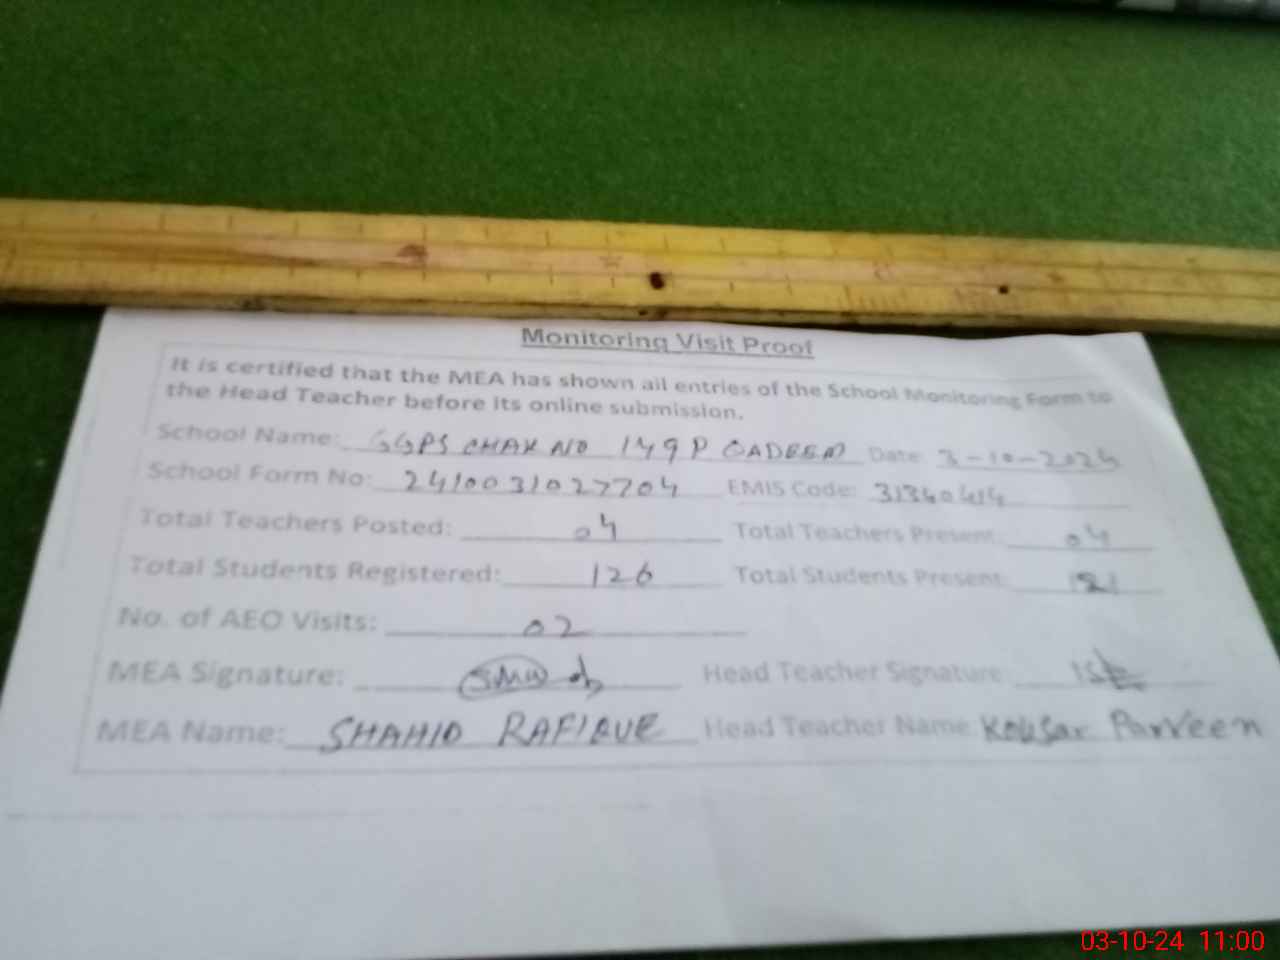 Monitoring Visit Proof
It is certified that the MEA has shown all entries of the School Monitoring Form to
the Head Teacher before its online submission.
School Name: GGPS CHAK NO 149 P QADEEM Date: 3-10-2024
School Form No: 2410031027704 EMIS Code: 31340414
Total Teachers Posted: 04 Total Teachers Present: 04
Total Students Registered: 126 Total Students Present: 121
No. of AEO Visits: 02
MEA Signature: Head Teacher Signature:
MEA Name: SHAHID RAFIQUE Head Teacher Name Kousar Parveen
03-10-24 11:00